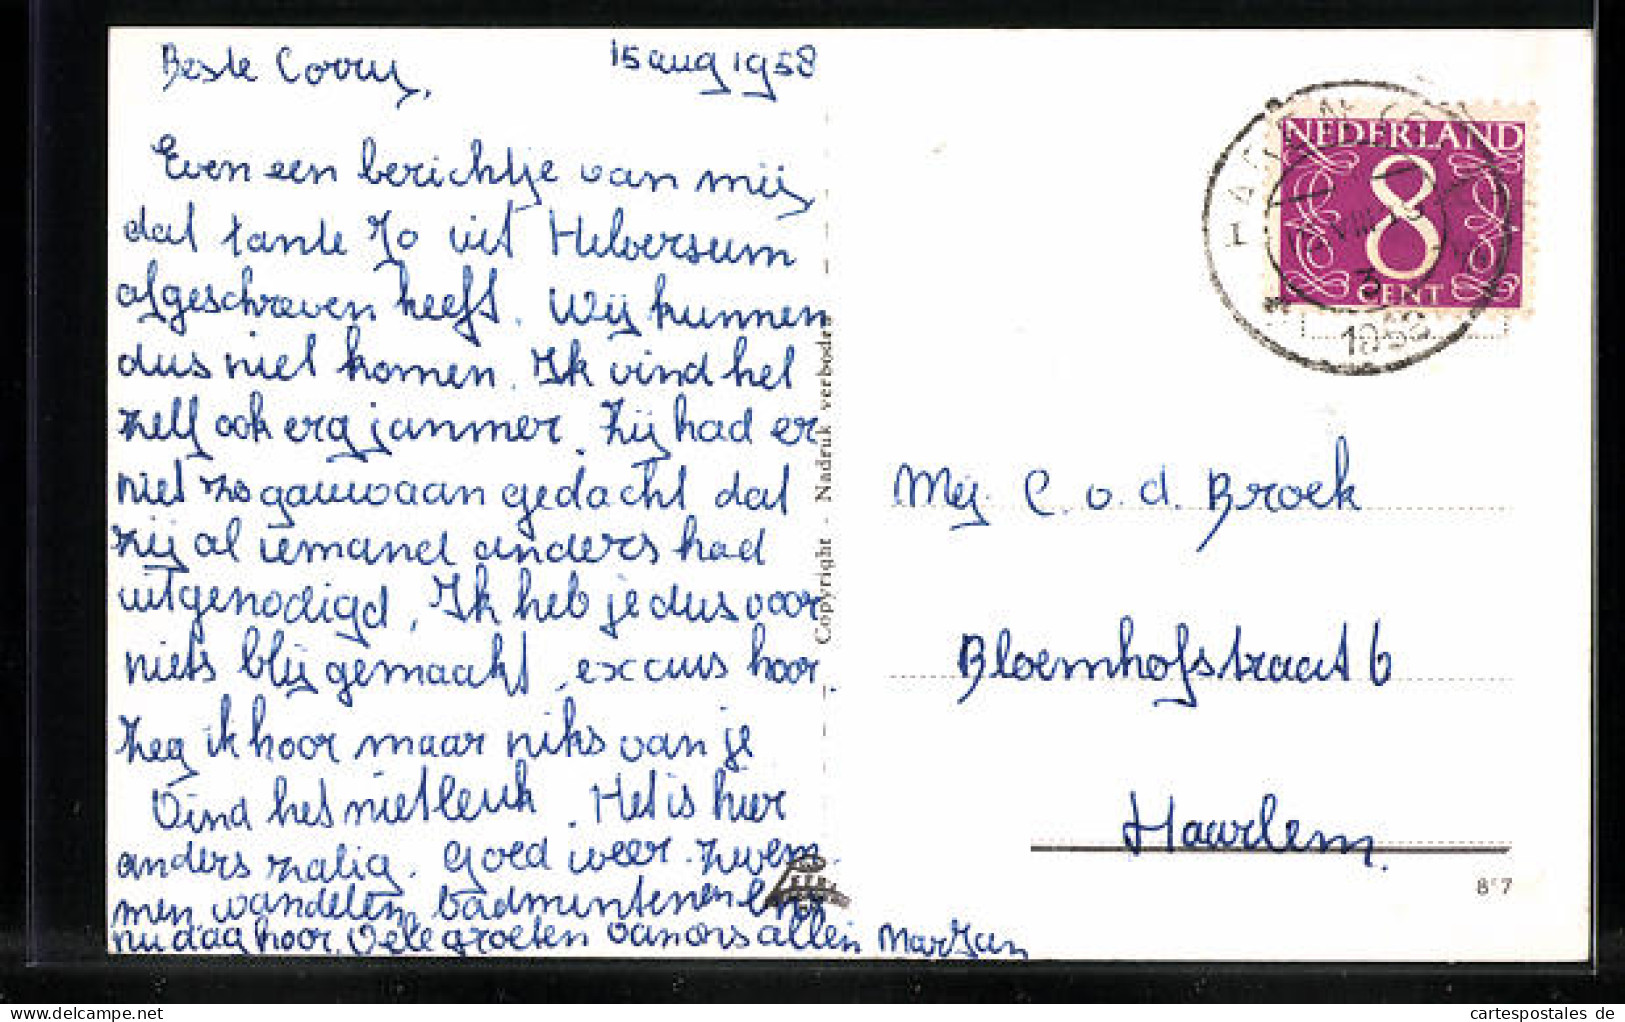 Beste Corry,
15 aug 1958
Even een berichtje van mij
dat tante Jo uit Hilversum
afgeschreven heeft. Wij kunnen
dus niet komen. Ik vind het
zelf ook erg jammer. Zij had er
niet zo gauw aan gedacht dat
zij al iemand anders had
uitgenodigd. Ik heb je dus voor
niets blij gemaakt, excuus hoor.
Zeg ik hoor maar niks van je
Vind het niet leuk. Het is hier
anders zalig. Goed weer. Zwem-
men, wandelen, badmintonnen enz
nu dag hoor. Vele groeten van ons allen Marjan
Copyright - Nadruk verboden
NEDERLAND
8
CENT
3
195
Mej. C. v. d. Broek
Bloemhofstraat 6
Haarlem.
857
cartespostales de